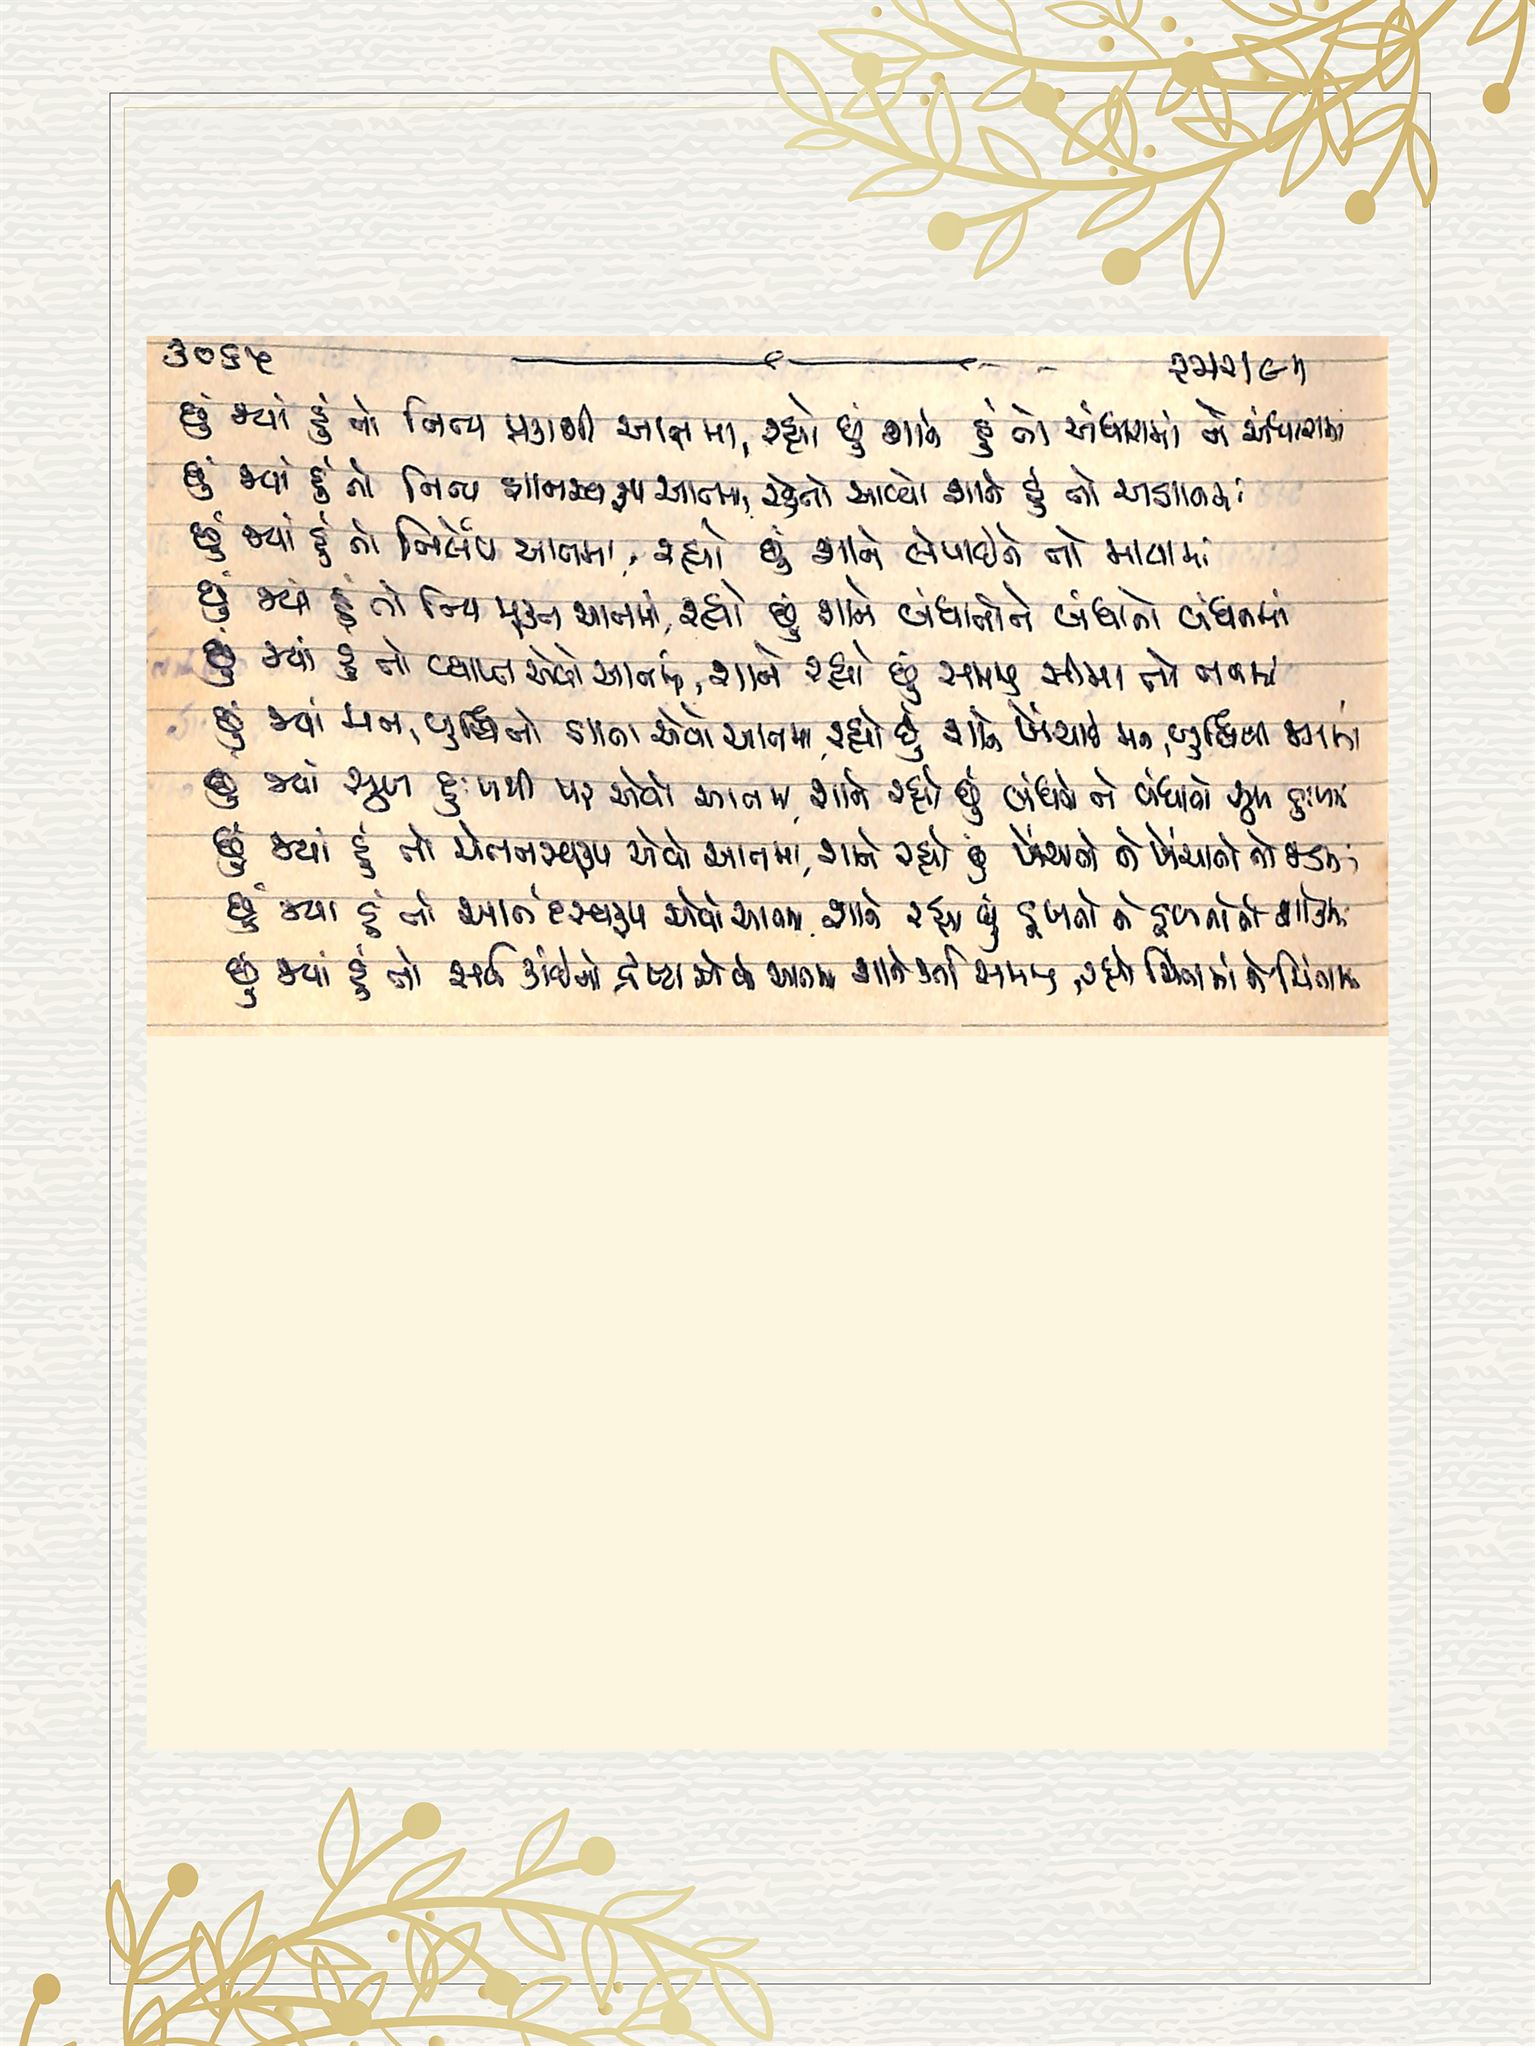 ૩૦૬૫
છું જ્યાં હું તો નિત્ય પ્રકાશી આત્મા, રહ્યો છું શાને હું તો અંધારામાં ને અંધારામાં
છું જ્યાં હું તો નિત્ય જ્ઞાનસ્વરૂપ આત્મા, રહેતો આવ્યો શાને હું તો અજ્ઞાનમાં
છું જ્યાં હું તો નિર્લેપ આત્મા, રહ્યો છું શાને લેપાઈને તો માયામાં
છું જ્યાં હું તો નિત્ય મુક્ત આત્મા, રહ્યો છું શાને બંધાતોને બંધાતો બંધનમાં
છું જ્યાં હું તો વ્યાપ્ત એવો આત્મા, શાને રહ્યો છું સમજી સીમા તો તનમાં
છું જ્યાં મન, બુદ્ધિનો જ્ઞાતા એવો આત્મા, રહ્યો છું શાને ખેંચાઈ મન, બુદ્ધિના
છું જ્યાં સુખ દુઃખથી પર એવો આત્મા, શાને રહ્યો છું બંધાતો ને બંધાતો સુખ દુઃખમાં
છું જ્યાં હું તો ચેતનસ્વરૂપ એવો આત્મા, શાને રહ્યો છું ખેંચાતો ને ખેંચાતો તો જડમાં
છું જ્યાં હું તો આનંદસ્વરૂપ એવો આત્મા, શાને રહ્યો છું ડૂબતો ને ડૂબતો તો શોકમાં
છું જ્યાં હું તો સર્વ કાંઈનો દ્રષ્ટા એવો આત્મા શાને કર્તા સમજી, રહ્યો ચિંતામાં ને ચિંતામાં